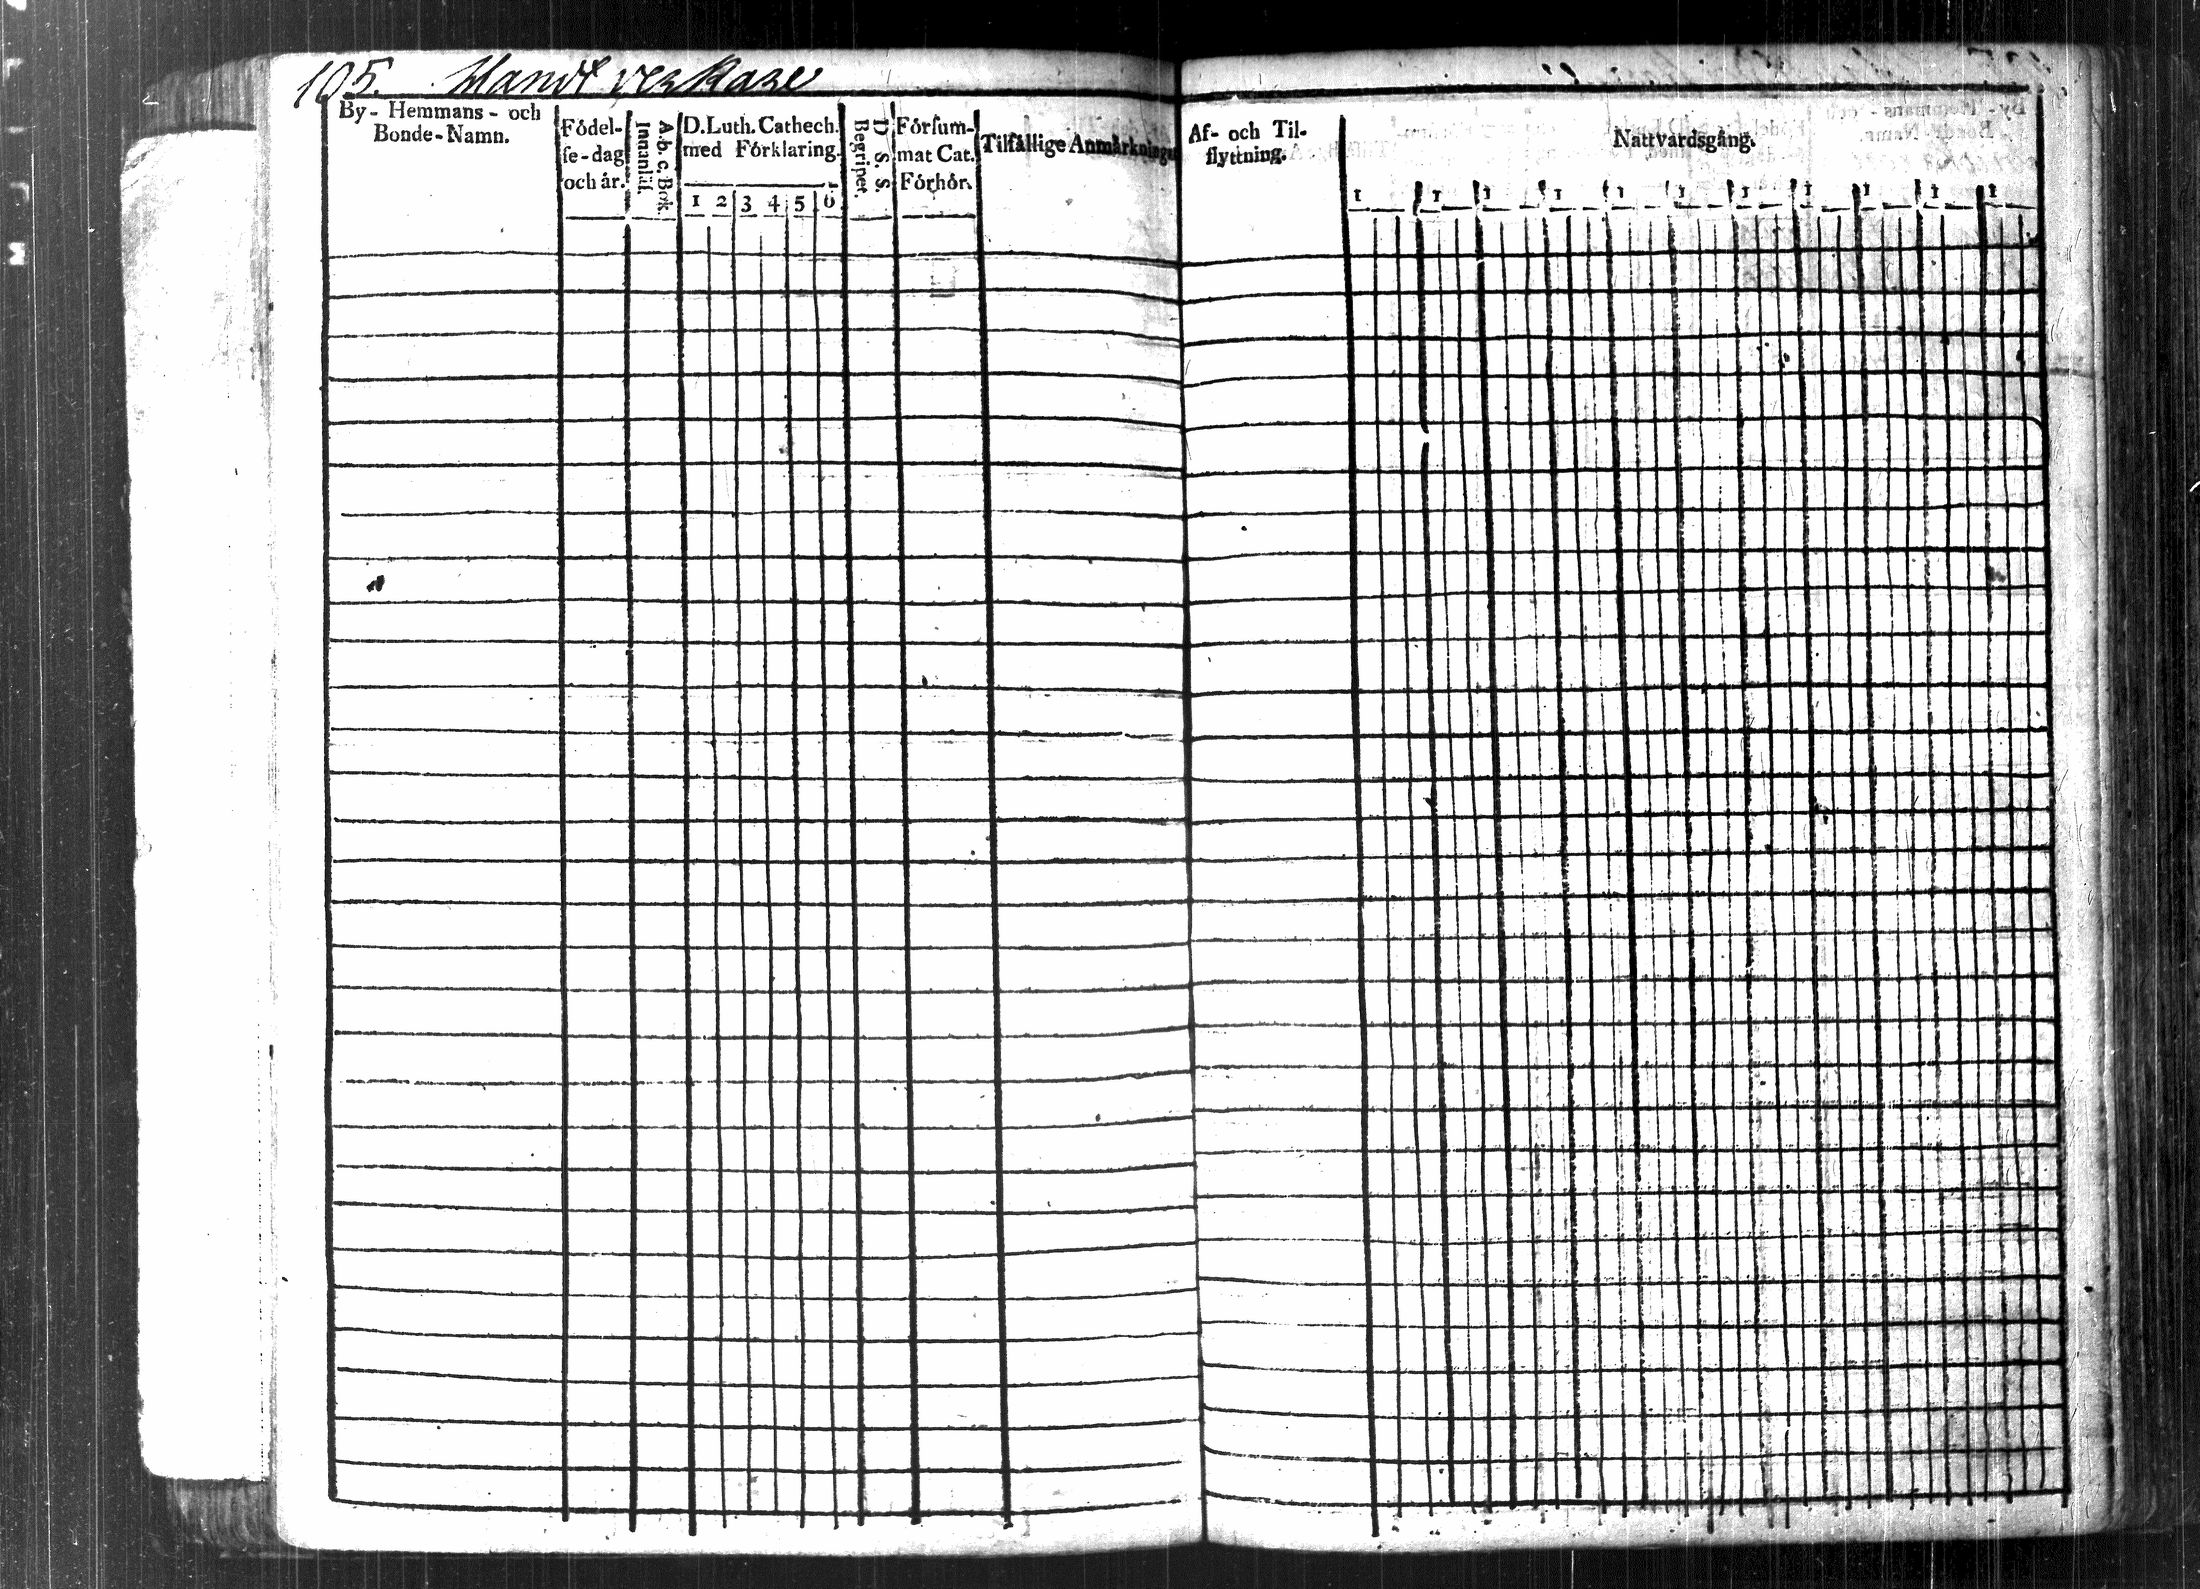 105. Handtverkare
By- Hemmans- och
Bonde-Namn.
Födel-
se-dag
och år.
A.b.c. Bok.
Innanläs.
D. Luth. Cathech.
med Förklaring.
1 2 3 4 5 6
D. S. S.
Begripet.
Försum-
mat Cat.
Förhör.
Tilfällige Anmärkningar
Af- och Til-
flyttning.
Nattvardsgång.
1 1 1 1 1 1 1 1 1 1 1